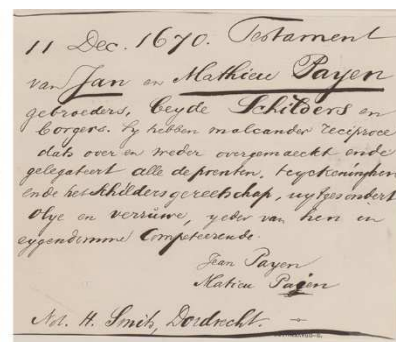 11 Dec. 1670. Testament
van Jan en Mathieu Payen
gebroeders, beyde Schilders en
borgers. Sy hebben malcander reciproce
dats over en weder overgemaeckt ende
gelegateert alle de prenten, teyckeninghen
ende het schildersgereetschap, uytgesondert
olye en verruwe, yeder van hen in
eygendomme Competeerende.
Jean Payen
Matieu Payen
Not. H. Smits, Dordrecht.